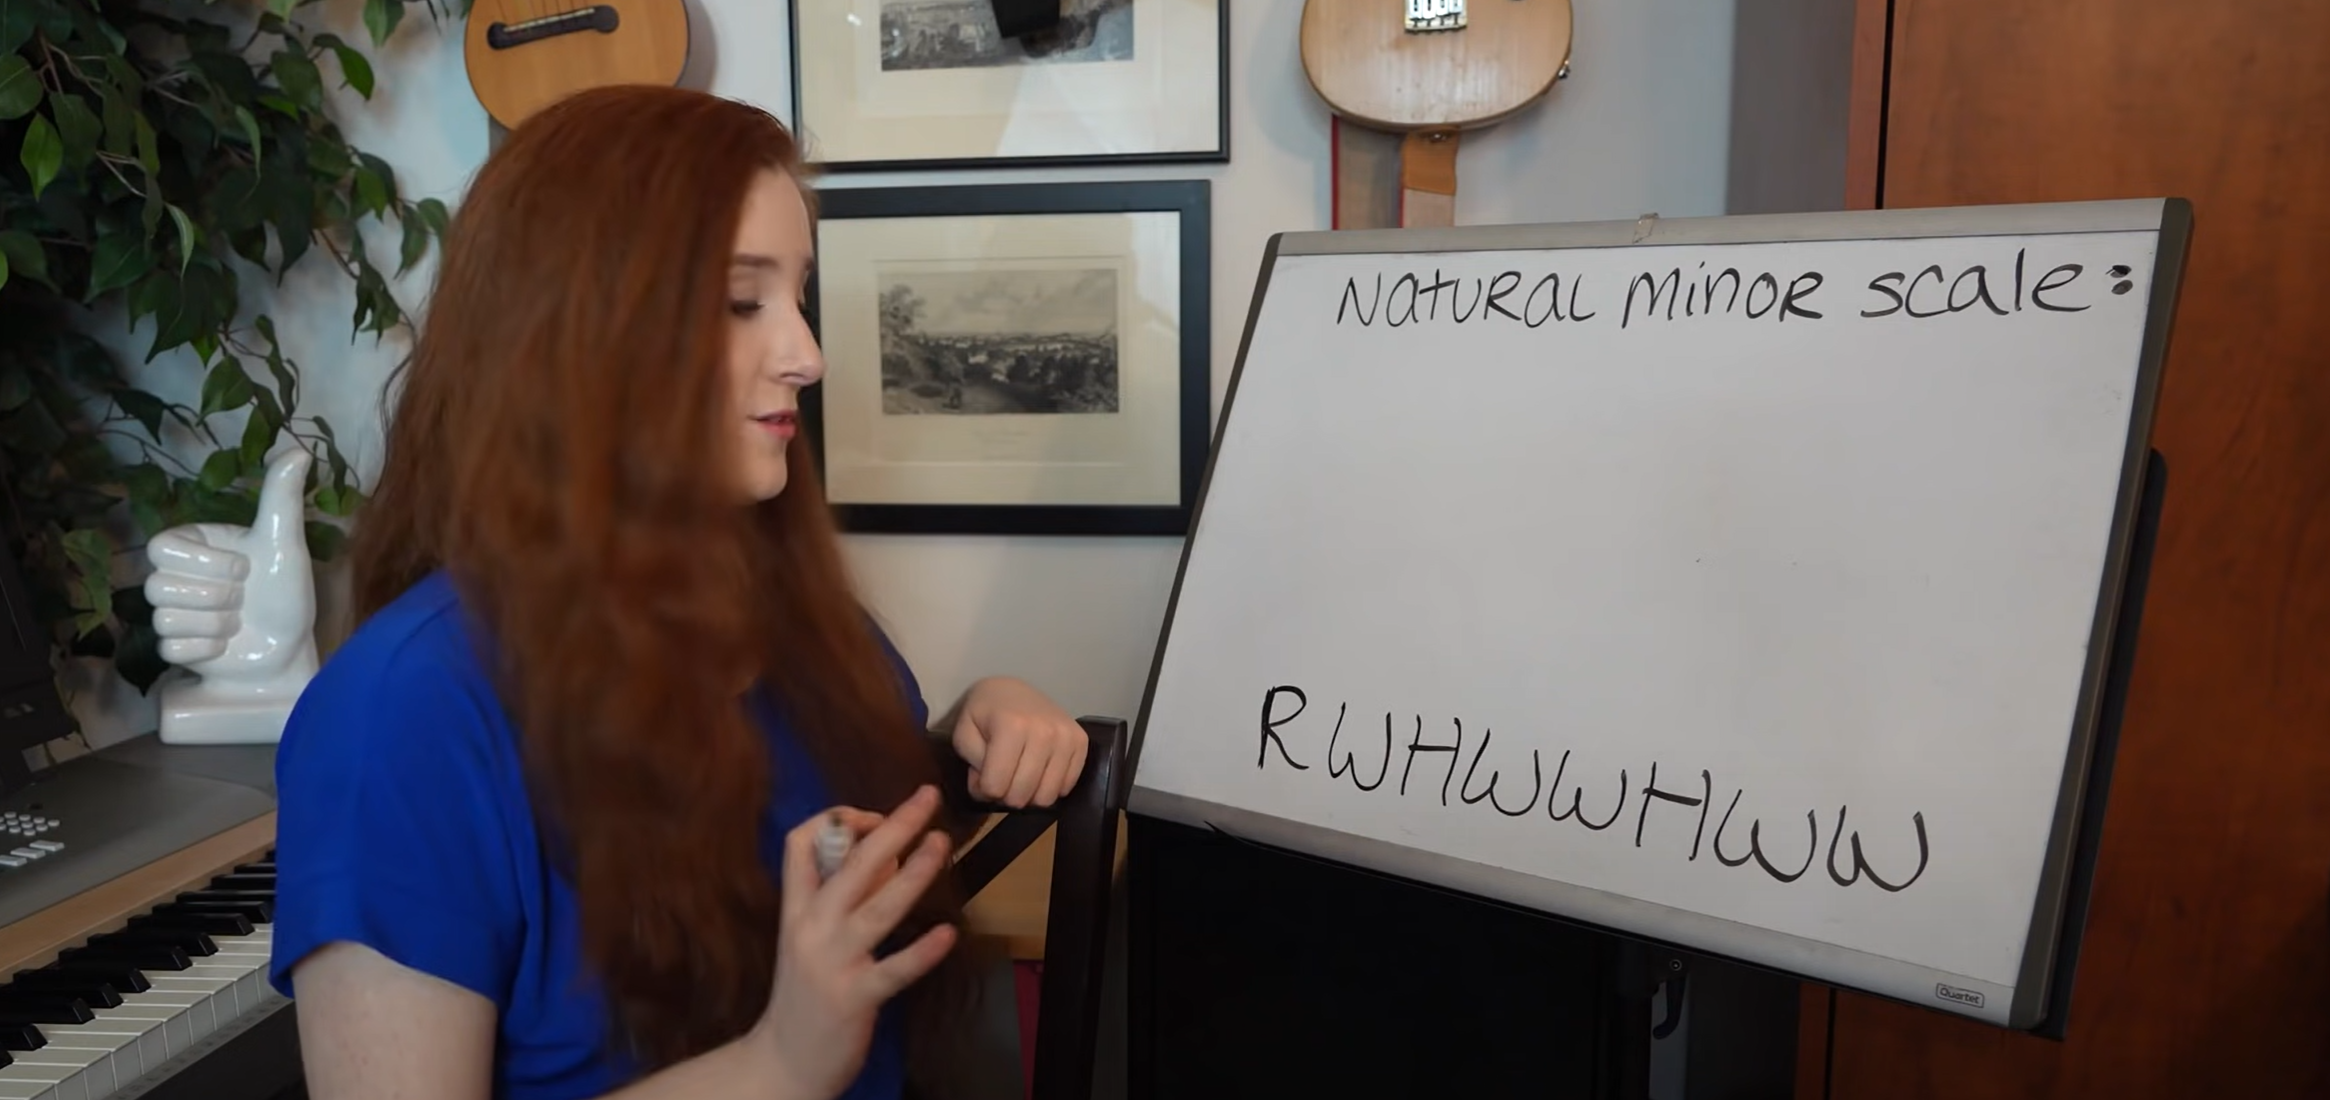 Natural minor scale:
R W H W W H W W
Quartet